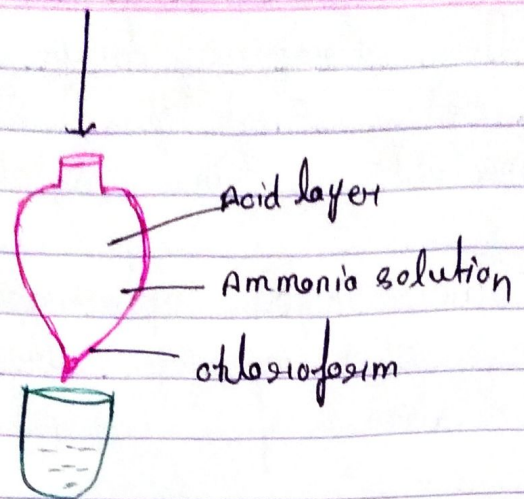 Acid layer
Ammonia solution
chloroform